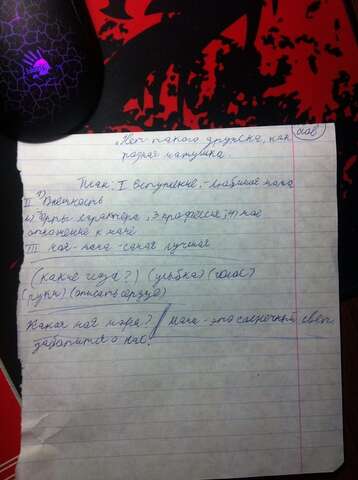 „Нет такого дружка, как
родная матушка.
План: I вступление, - любимая мама
II 1) Внешность
2) черты характера, 3 профессия, 4) моё
отношение к маме
III моя - мама - самая лучшая
(какие глаза?) (улыбка) (голос)
(руки) (описать сердце)
Какая моя мама? // мама - это солнечный свет
заботится о нас.